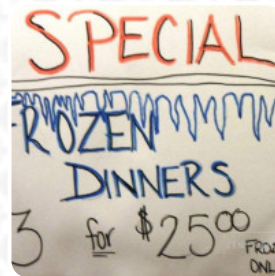 SPECIAL
FROZEN
DINNERS
3 for $2500